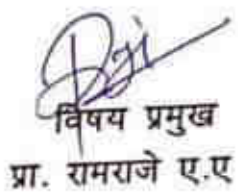 विषय प्रमुख
प्रा. रामराजे ए.ए